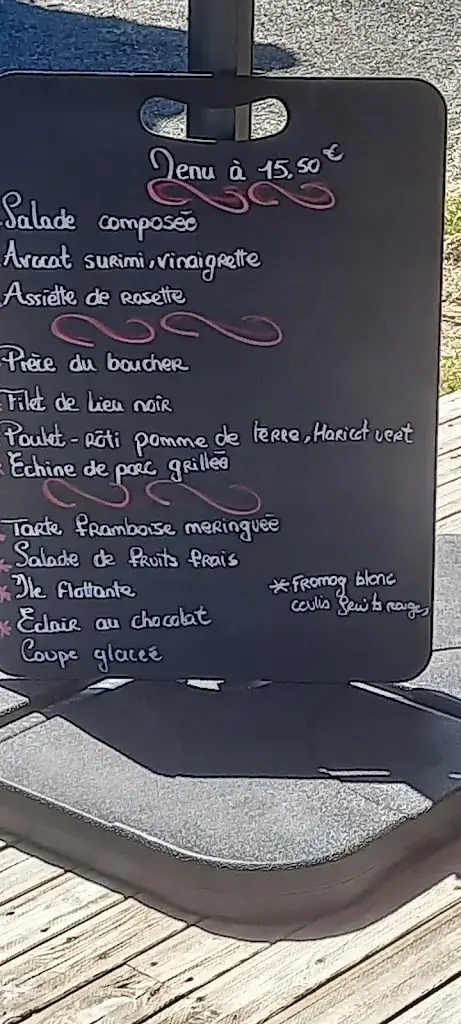 Menu à 15,50€
Salade composée
Avocat surimi, vinaigrette
Assiette de Rosette
Pièce du boucher
Filet de lieu noir
Poulet-rôti pomme de terre, Haricot vert
Echine de porc grillée
Tarte framboise meringuée
* Salade de fruits frais
* Ile flottante
* Eclair au chocolat
Coupe glacée
* Fromag blanc
coulis fruits rouges